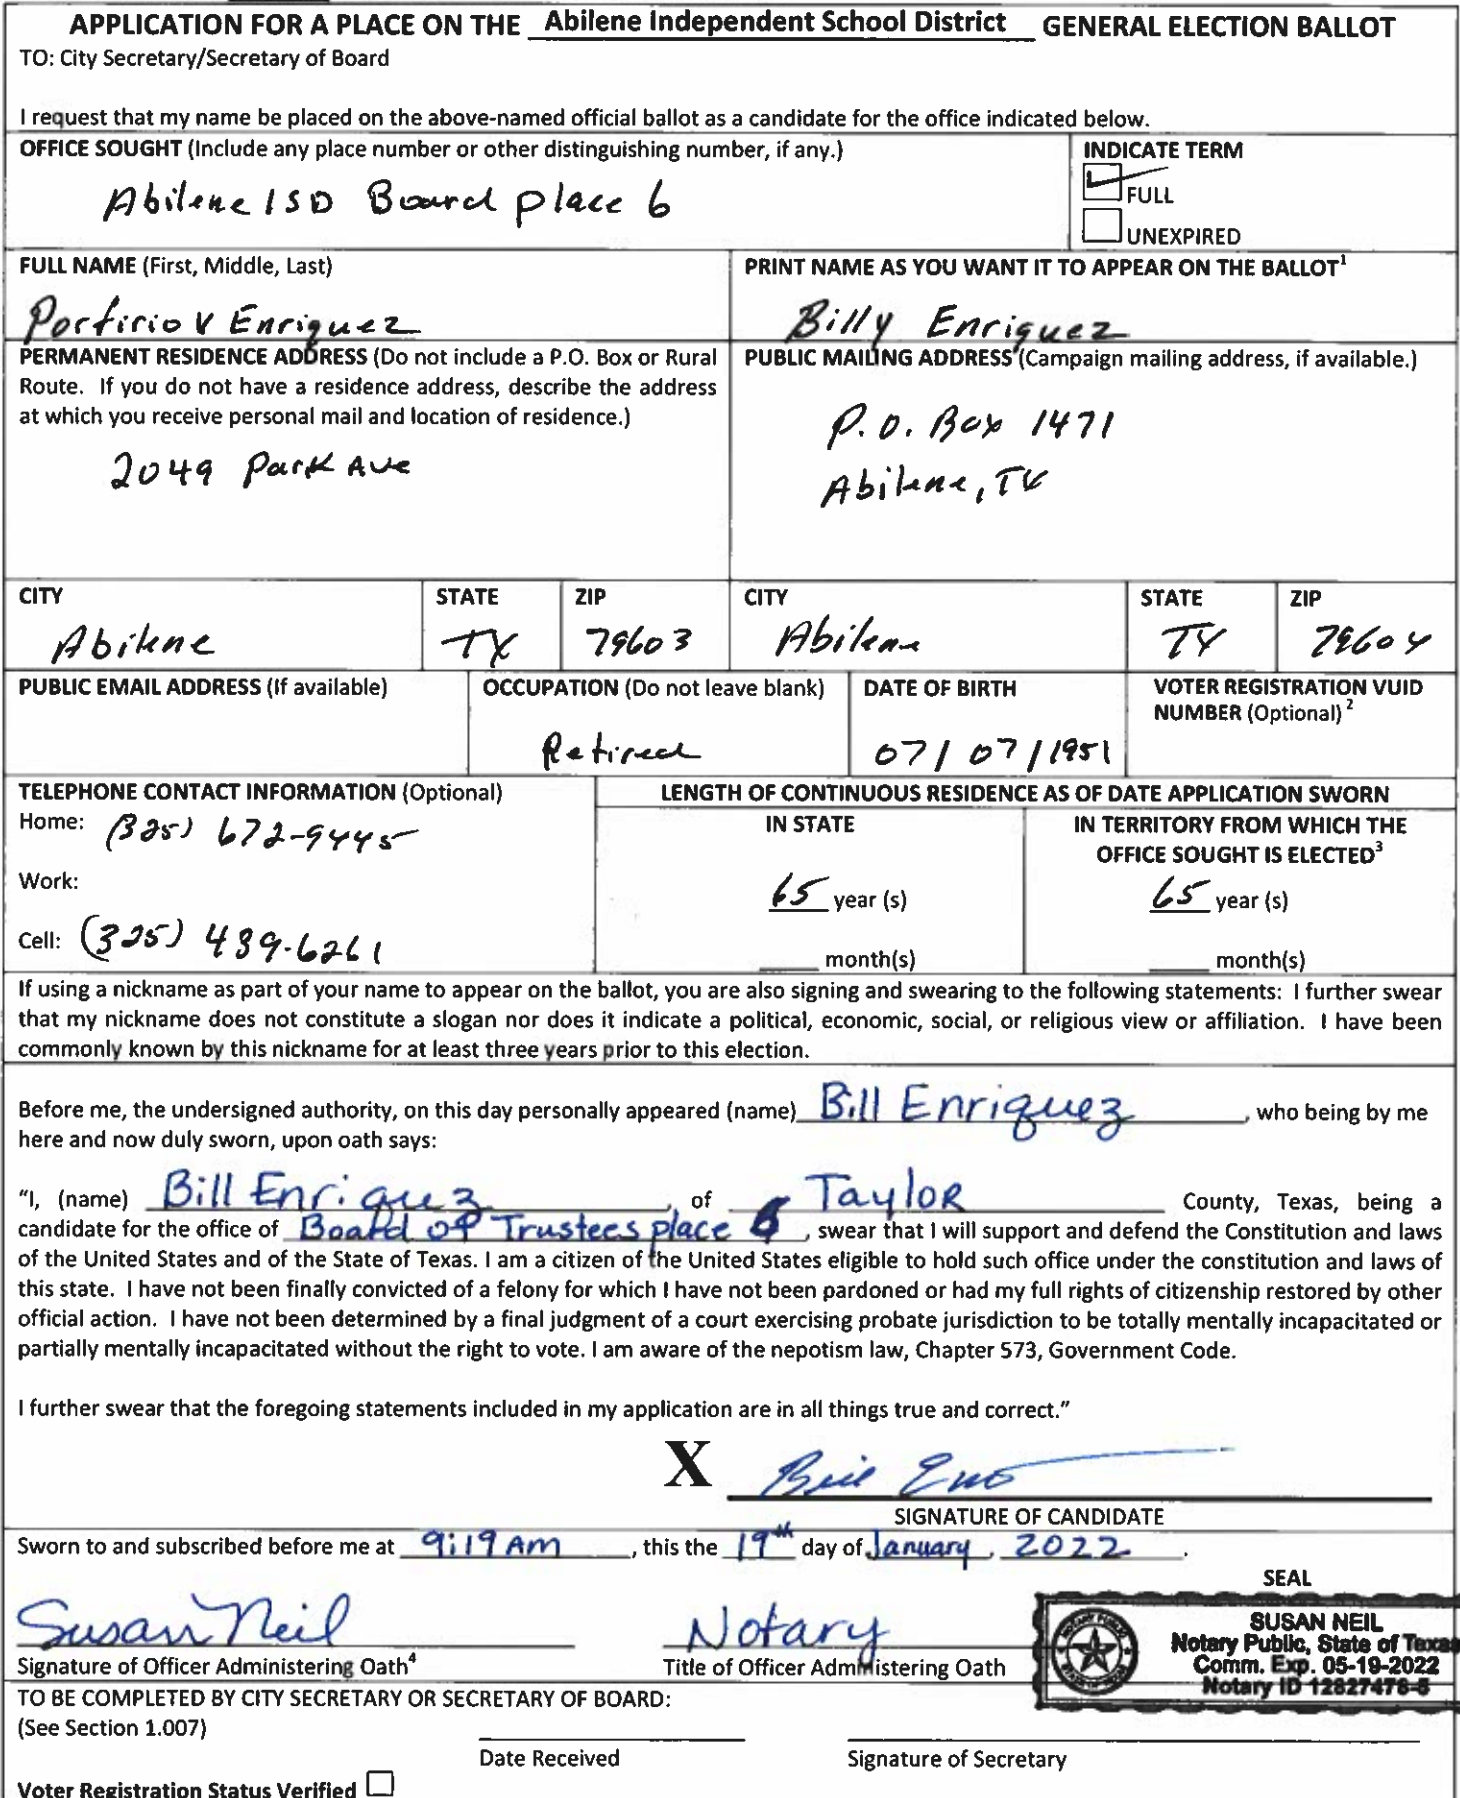 APPLICATION FOR A PLACE ON THE Abilene Independent School District GENERAL ELECTION BALLOT
TO: City Secretary/Secretary of Board
I request that my name be placed on the above-named official ballot as a candidate for the office indicated below.
OFFICE SOUGHT (Include any place number or other distinguishing number, if any.)
Abilene ISD Board place 6
INDICATE TERM
FULL
UNEXPIRED
FULL NAME (First, Middle, Last)
Porfirio V Enriquez
PRINT NAME AS YOU WANT IT TO APPEAR ON THE BALLOT¹
Billy Enriquez
PERMANENT RESIDENCE ADDRESS (Do not include a P.O. Box or Rural
Route. If you do not have a residence address, describe the address
at which you receive personal mail and location of residence.)
2049 Park Ave
PUBLIC MAILING ADDRESS (Campaign mailing address, if available.)
P.O. Box 1471
Abilene, TX
CITY
Abilene
STATE
TX
ZIP
79603
CITY
Abilene
STATE
TX
ZIP
79604
PUBLIC EMAIL ADDRESS (If available)
OCCUPATION (Do not leave blank)
Retired
DATE OF BIRTH
07/07/1951
VOTER REGISTRATION VUID
NUMBER (Optional) ²
TELEPHONE CONTACT INFORMATION (Optional)
Home: (325) 672-9445
Work:
Cell: (325) 439-6261
LENGTH OF CONTINUOUS RESIDENCE AS OF DATE APPLICATION SWORN
IN STATE
65 year (s)
month(s)
IN TERRITORY FROM WHICH THE
OFFICE SOUGHT IS ELECTED³
65 year (s)
month(s)
If using a nickname as part of your name to appear on the ballot, you are also signing and swearing to the following statements: I further swear
that my nickname does not constitute a slogan nor does it indicate a political, economic, social, or religious view or affiliation. I have been
commonly known by this nickname for at least three years prior to this election.
Before me, the undersigned authority, on this day personally appeared (name) Bill Enriquez, who being by me
here and now duly sworn, upon oath says:
"I, (name) Bill Enriquez, of Taylor County, Texas, being a
candidate for the office of Board of Trustees place 6, swear that I will support and defend the Constitution and laws
of the United States and of the State of Texas. I am a citizen of the United States eligible to hold such office under the constitution and laws of
this state. I have not been finally convicted of a felony for which I have not been pardoned or had my full rights of citizenship restored by other
official action. I have not been determined by a final judgment of a court exercising probate jurisdiction to be totally mentally incapacitated or
partially mentally incapacitated without the right to vote. I am aware of the nepotism law, Chapter 573, Government Code.
I further swear that the foregoing statements included in my application are in all things true and correct."
X
SIGNATURE OF CANDIDATE
Sworn to and subscribed before me at 9:19 AM, this the 19th day of January, 2022.
SEAL
Susan Neil
Signature of Officer Administering Oath⁴
Notary
Title of Officer Administering Oath
SUSAN NEIL
Notary Public, State of Texas
Comm. Exp. 05-19-2022
Notary ID 12827476-5
TO BE COMPLETED BY CITY SECRETARY OR SECRETARY OF BOARD:
(See Section 1.007)
Date Received
Signature of Secretary
Voter Registration Status Verified